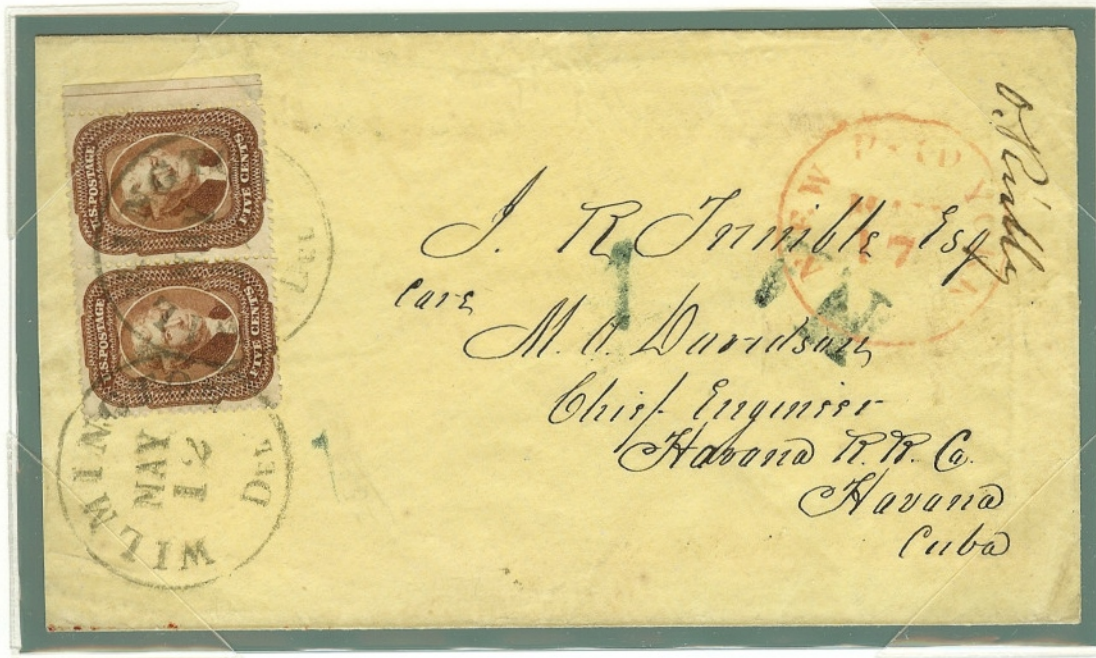 U.S. POSTAGE
FIVE CENTS
U.S. POSTAGE
FIVE CENTS
DEL
WILMIN
MAY
12
DEL
NEW PAID YORK
MAY
17
1
J. R. Trimble Esq
Care
M. O. Davidson
Chief Engineer
Havana R. R. Co.
Havana
Cuba